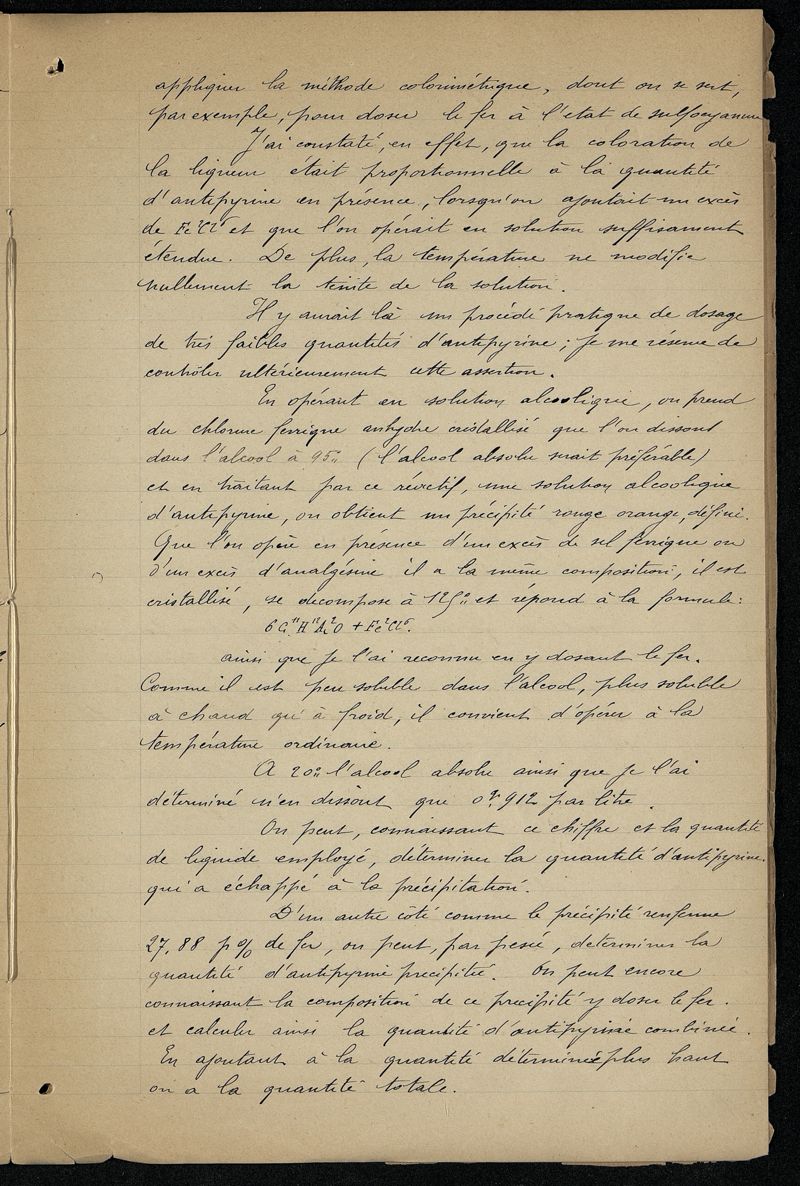 appliquer la méthode colorimétrique, dont on se sert,
par exemple, pour doser le fer à l'état de sulfocyanure
J'ai constaté, en effet, que la coloration de
la liqueur était proportionnelle à la quantité
d'antipyrine en présence, lorsqu'on ajoutait un excès
de Fe²Cl⁶ et que l'on opérait en solution suffisamment
étendue. De plus, la température ne modifie
nullement la teinte de la solution.
Il y aurait là un procédé pratique de dosage
de très faibles quantités d'antipyrine ; je me réserve de
contrôler ultérieurement cette assertion.
En opérant en solution alcoolique, on prend
du chlorure ferrique anhydre cristallisé que l'on dissout
dans l'alcool à 95° (l'alcool absolu serait préférable)
et en traitant par ce réactif, une solution alcoolique
d'antipyrine, on obtient un précipité rouge orange, défini.
Que l'on opère en présence d'un excès de sel ferrique ou
d'un excès d'analgésine il a la même composition, il est
cristallisé, se décompose à 125° et répond à la formule :
6 C¹¹H¹²Az²O + Fe²Cl⁶.
ainsi que je l'ai reconnu en y dosant le fer.
Comme il est peu soluble dans l'alcool, plus soluble
à chaud qu'à froid, il convient d'opérer à la
température ordinaire.
A 20° l'alcool absolu ainsi que je l'ai
déterminé n'en dissout que 0gr,912 par litre.
On peut, connaissant ce chiffre et la quantité
de liquide employé, déterminer la quantité d'antipyrine
qui a échappé à la précipitation.
D'un autre côté comme le précipité renferme
27,88 p % de fer, on peut, par pesée, déterminer la
quantité d'antipyrine précipitée. On peut encore
connaissant la composition de ce précipité y doser le fer.
et calculer ainsi la quantité d'antipyrine combinée.
En ajoutant à la quantité déterminée plus haut
on a la quantité totale.